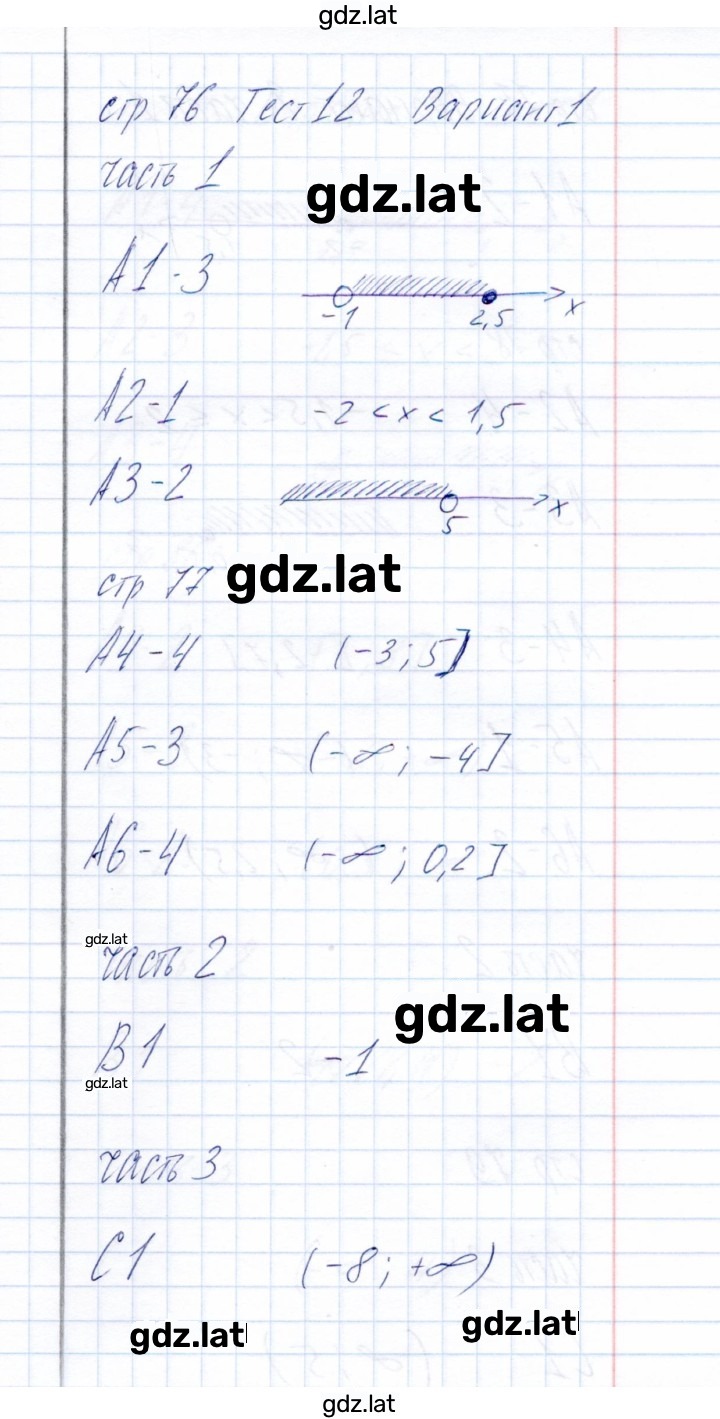 gdz.lat
стр 76 Тест 12 Вариант 1
часть 1
gdz.lat
А1-3
-1 2,5 x
А2-1 -2 < x < 1,5
А3-2
5 x
стр 77 gdz.lat
А4-4 (-3; 5]
А5-3 (-∞; -4]
А6-4 (-∞; 0,2]
gdz.lat
часть 2
gdz.lat
В1 -1
gdz.lat
часть 3
С1 (-8; +∞)
gdz.lat gdz.lat
gdz.lat